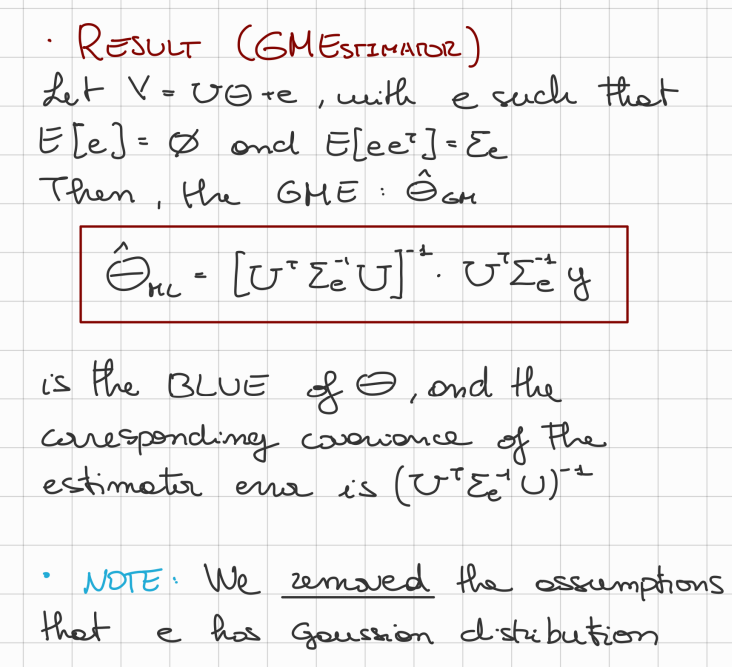 · RESULT (GMESTIMATOR)
Let V = UΘ + e, with e such that
E[e] = ∅ and E[eeᵀ] = Σₑ
Then, the GME : Θ̂_GM
Θ̂_ML = [Uᵀ Σₑ⁻¹ U]⁻¹ · Uᵀ Σₑ⁻¹ y
is the BLUE of Θ, and the
corresponding covariance of the
estimator error is (Uᵀ Σₑ⁻¹ U)⁻¹
· NOTE: We removed the assumptions
that e has Gaussian distribution